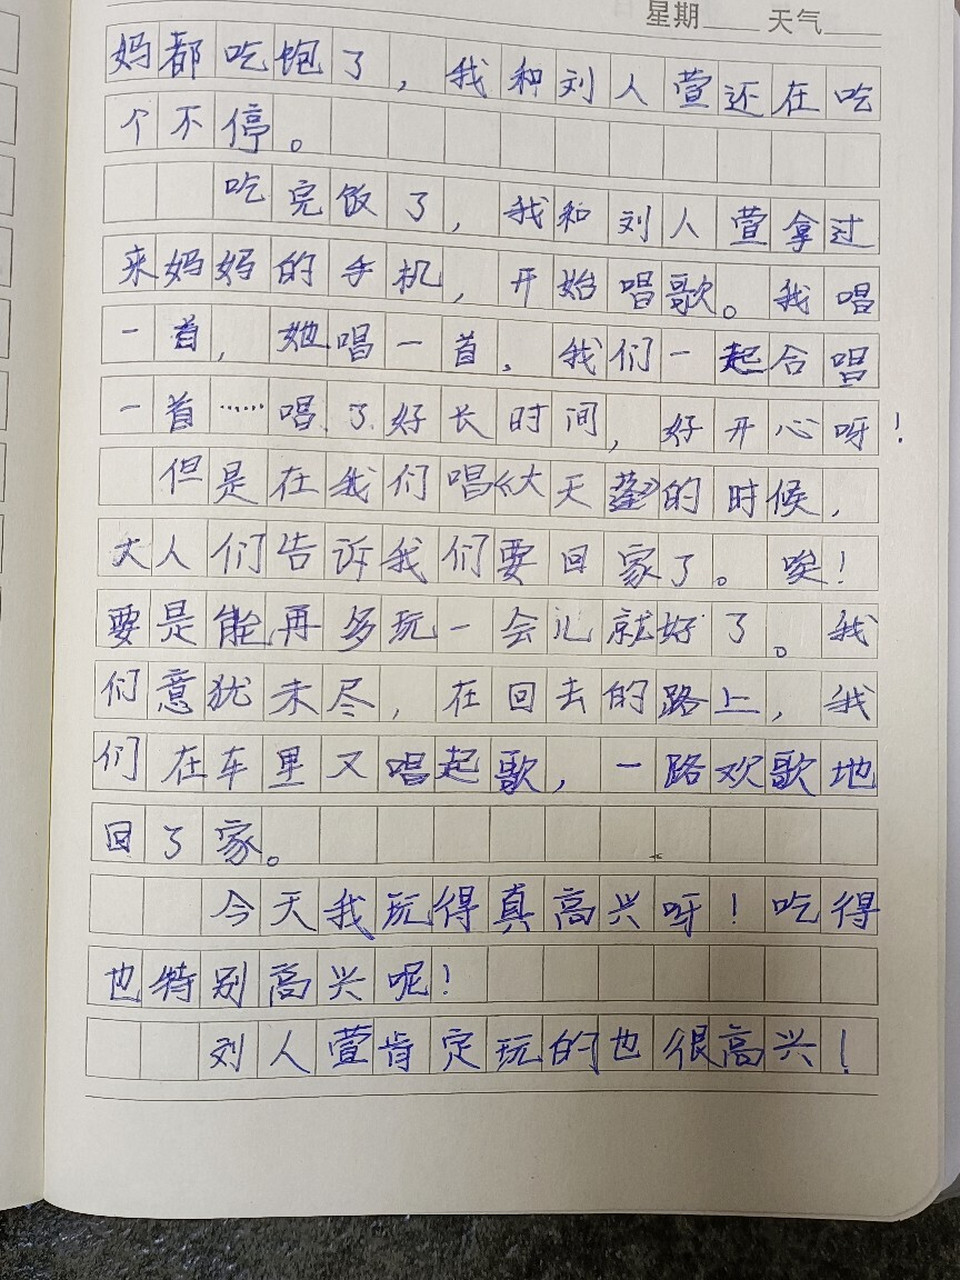 星期 天气
妈都吃饱了，我和刘人萱还在吃
个不停。
吃完饭了，我和刘人萱拿过
来妈妈的手机，开始唱歌。我唱
一首，她唱一首，我们一起合唱
一首……唱了好长时间，好开心呀！
但是在我们唱《大天蓬》的时候，
大人们告诉我们要回家了。唉！
要是能再多玩一会儿就好了。我
们意犹未尽，在回去的路上，我
们在车里又唱起歌，一路欢歌地
回了家。
今天我玩得真高兴呀！吃得
也特别高兴呢！
刘人萱肯定玩的也很高兴！